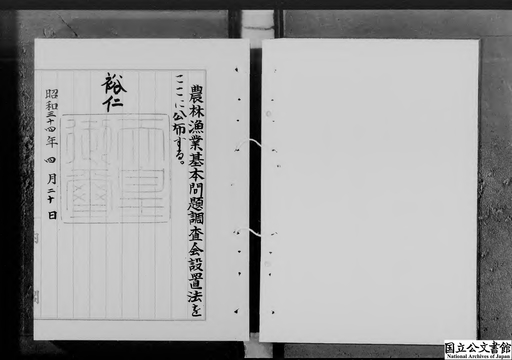 農林漁業基本問題調査会設置法を
ここに公布する。
裕仁
天皇
御璽
昭和三十四年四月二十日
国立公文書館
National Archives of Japan